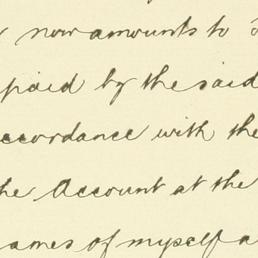 now amounts to
paid by the said
ccordance with the
he Account at the
ames of myself a